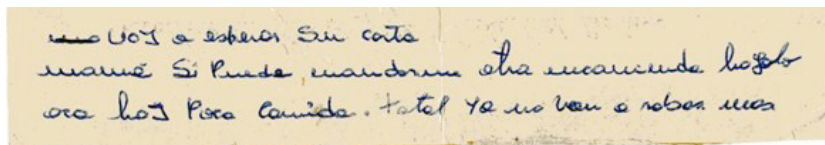 voy a esperar su carta
mamá Si Puede mandarme otra encomienda hagalo
aca hay Poca Comida. total ya no van a robar mas